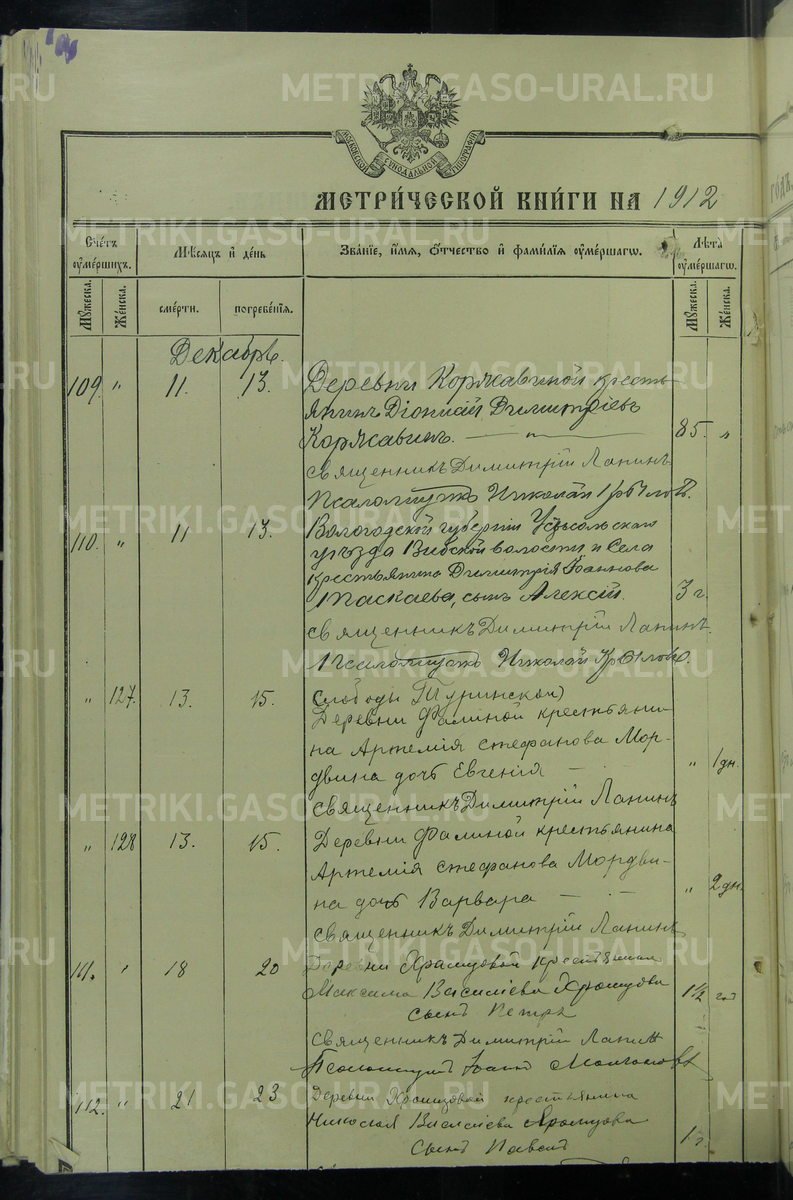 МОСКОВСКОЙ СѴНОДАЛЬНОЙ ТИПОГРАФІИ
МЕТРИ́ЧЕСКОЙ КНИ́ГИ НА 1912
Счетъ ѹмершихъ.
Мѣсяцъ и день
Званіе, имя, отчество и фамилія ѹмершагѡ.
Лѣта ѹмершагѡ.
Мужеска.
Женска.
смерти.
погребенія.
Мужеска.
Женска.
Декабрь.
109. " 11. 13. Деревни Коржавиной кресть-
янинъ Діонисій Димитріевъ
Коржавинъ. 85. "
священникъ Димитрій Лапинъ
Псаломщикъ Николай Крыловъ.
110. " 11 13. Вологодской губерніи Устьсольскаго
уѣзда волости и села
крестьянина Димитрія Іоаннова
Паскаева, сынъ Алексій. 3 г.
священникъ Димитрій Лапинъ.
Псаломщикъ Николай Крыловъ.
" 127. 13. 15. Слободы Туринской
Деревни Фалиной крестьяни-
на Артемія Стефанова Мор-
двина дочь Евгенія " 1 дн.
священникъ Димитрій Лапинъ
" 128 13. 15. Деревни Фалиной крестьянина
Артемія Стефанова Мордви-
на дочь Варвара " 2 дн.
священникъ Димитрій Лапинъ
111. " 18 20 Деревни Храмцовой крестьянина
Максима Василіева Храмцова 1½ год
сынъ Петръ
священникъ Димитрій Лапинъ
Псаломщикъ Іоаннъ
112. " 21 23 Деревни Храмцовой крестьянина
Николая Василіева Храмцова
сынъ Павелъ 1 г.
METRIKI.GASO-URAL.RU